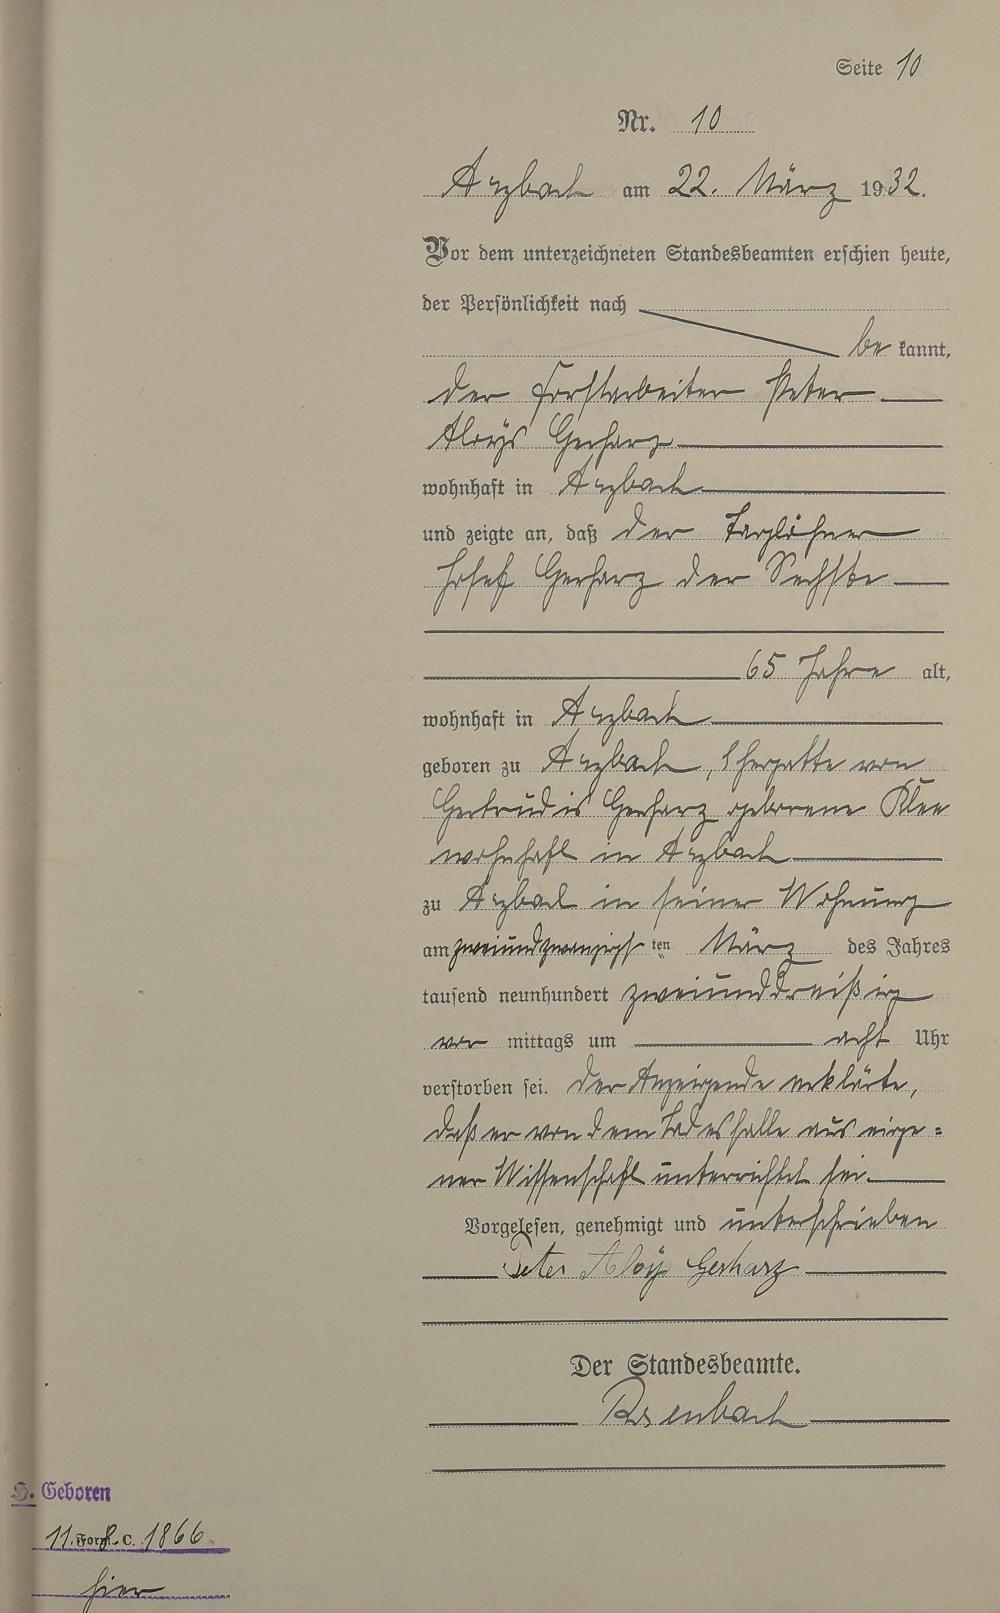 Seite 10
Nr. 10
Arzbach am 22. März 1932.
Vor dem unterzeichneten Standesbeamten erschien heute,
der Persönlichkeit nach
be kannt,
der Forstarbeiter Peter
Aloÿs Gerharz
wohnhaft in Arzbach
und zeigte an, daß der Taglöhner
Josef Gerharz der Sechste
65 Jahre alt,
wohnhaft in Arzbach
geboren zu Arzbach, Ehegatte von
Gertrudis Gerharz geborene Klee
wohnhaft in Arzbach
zu Arzbach in seiner Wohnung
am zweiundzwanzigsten März des Jahres
tausend neunhundert zweiunddreißig
vor mittags um acht Uhr
verstorben sei. Der Anzeigende erklärte,
daß er von dem Todesfalle aus eige=
ner Wissenschaft unterrichtet sei.
Vorgelesen, genehmigt und unterschrieben
Peter Aloÿs Gerharz
Der Standesbeamte.
Rosenbach
Geboren
11. 8. 1866.
hier